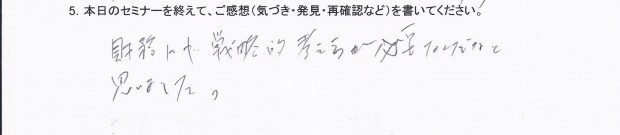 5. 本日のセミナーを終えて、ご感想（気づき・発見・再確認など）を書いてください。
財務にも戦略的考え方が必要なんだなと
思いました。